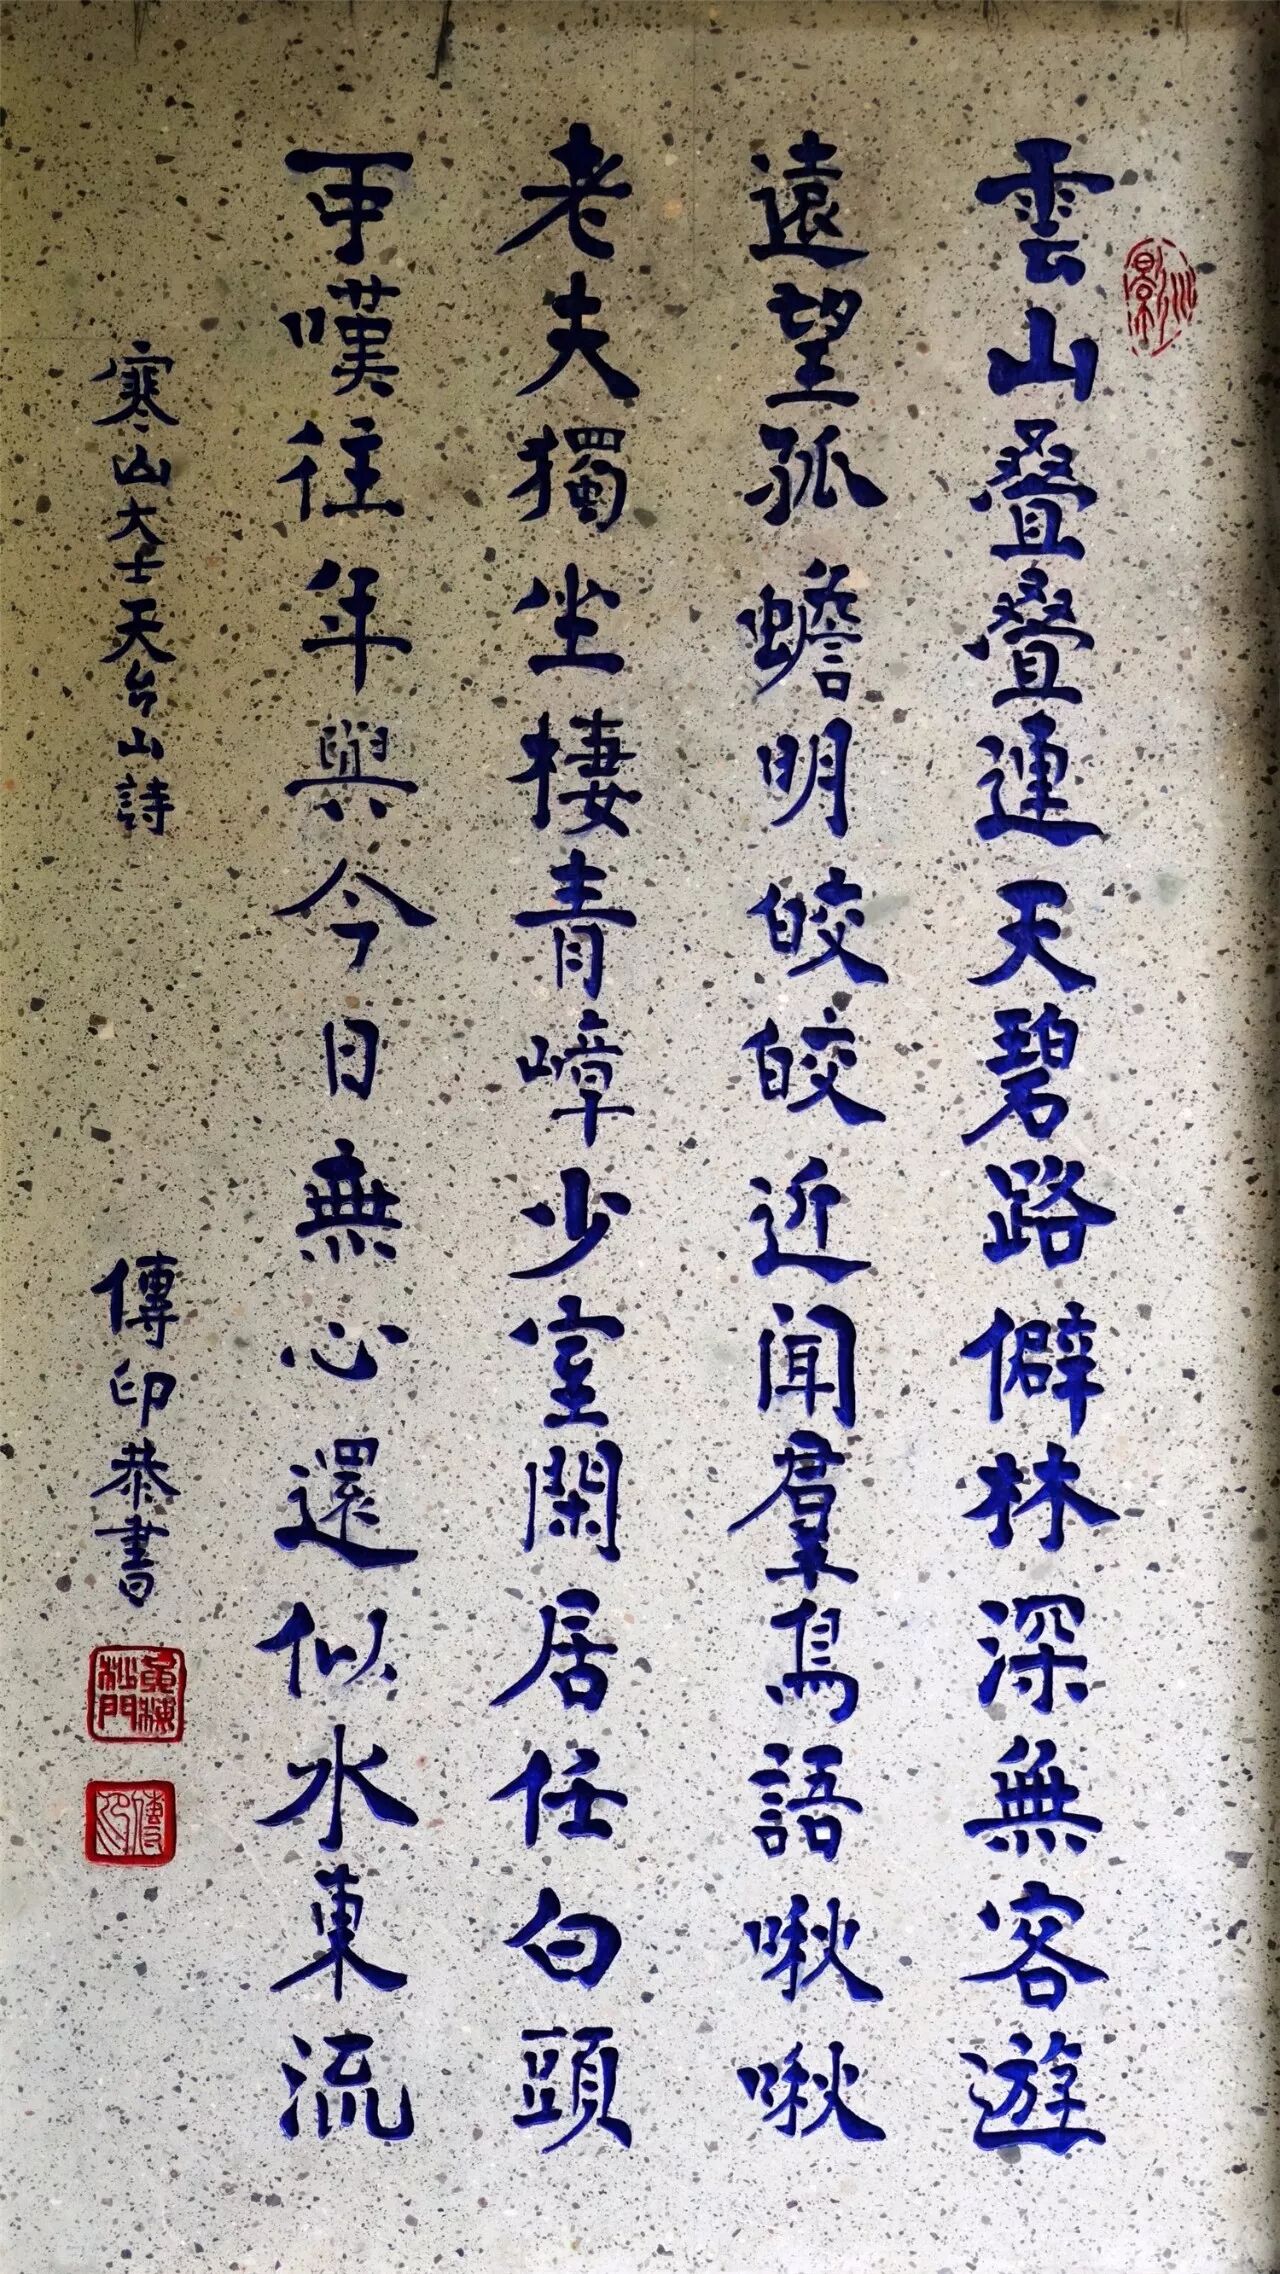 雲山叠叠連天碧路僻林深無客遊
遠望孤蟾明皎皎近聞羣鳥語啾啾
老夫獨坐棲青嶂少室閑居任白頭
可嘆往年與今日無心還似水東流
寒山大士天台山詩
傳印恭書
傳印